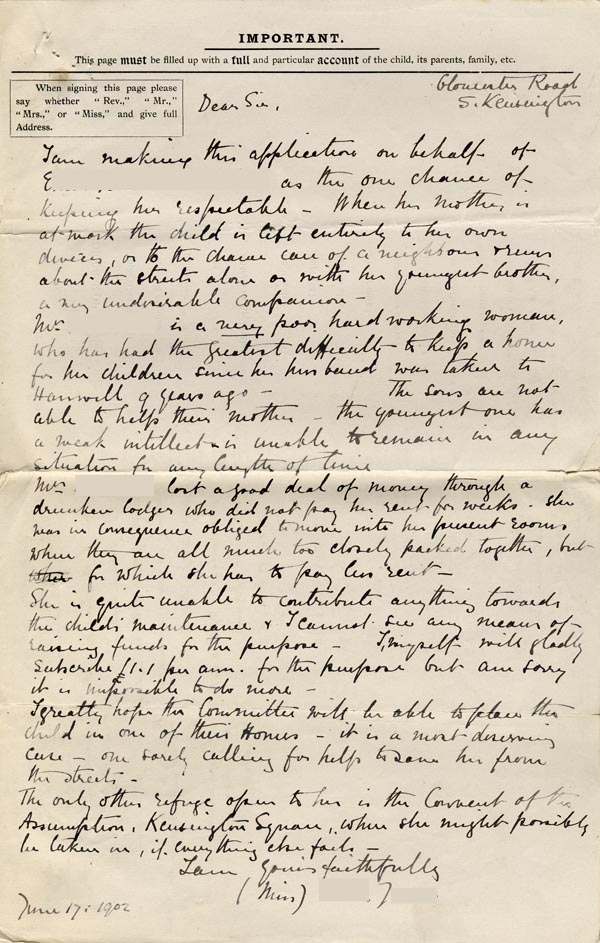 IMPORTANT.
This page must be filled up with a full and particular account of the child, its parents, family, etc.
When signing this page please
say whether "Rev.," "Mr.,"
"Mrs.," or "Miss," and give full
Address.
Gloucester Road
S. Kensington
Dear Sir,
I am making this application on behalf of
E. as the one chance of
keeping her respectable – When her mother is
at work the child is left entirely to her own
devices, or to the chance care of a neighbour & runs
about the streets alone or with her youngest brother,
a very undesirable companion –
Mrs is a very poor hardworking woman,
who has had the greatest difficulty to keep a home
for her children since her husband was taken to
Hanwell 9 years ago – The sons are not
able to help their mother – the youngest one has
a weak intellect & is unable to remain in any
situation for any length of time
Mrs lost a good deal of money through a
drunken lodger who did not pay her rent for weeks – She
was in consequence obliged to move into her present rooms
where they are all much too closely packed together, but
for which she has to pay less rent –
She is quite unable to contribute anything towards
the child's maintenance & I cannot see any means of
raising funds for the purpose – I myself will gladly
subscribe £1.1 per ann. for the purpose but am sorry
it is impossible to do more –
I greatly hope the Committee will be able to place the
child in one of their Homes – it is a most deserving
case – one sorely calling for help to save her from
the streets –
The only other refuge open to her is the Convent of the
Assumption, Kensington Square, where she might possibly
be taken in, if everything else fails –
I am, Yours faithfully
(Miss)
June 17: 1902